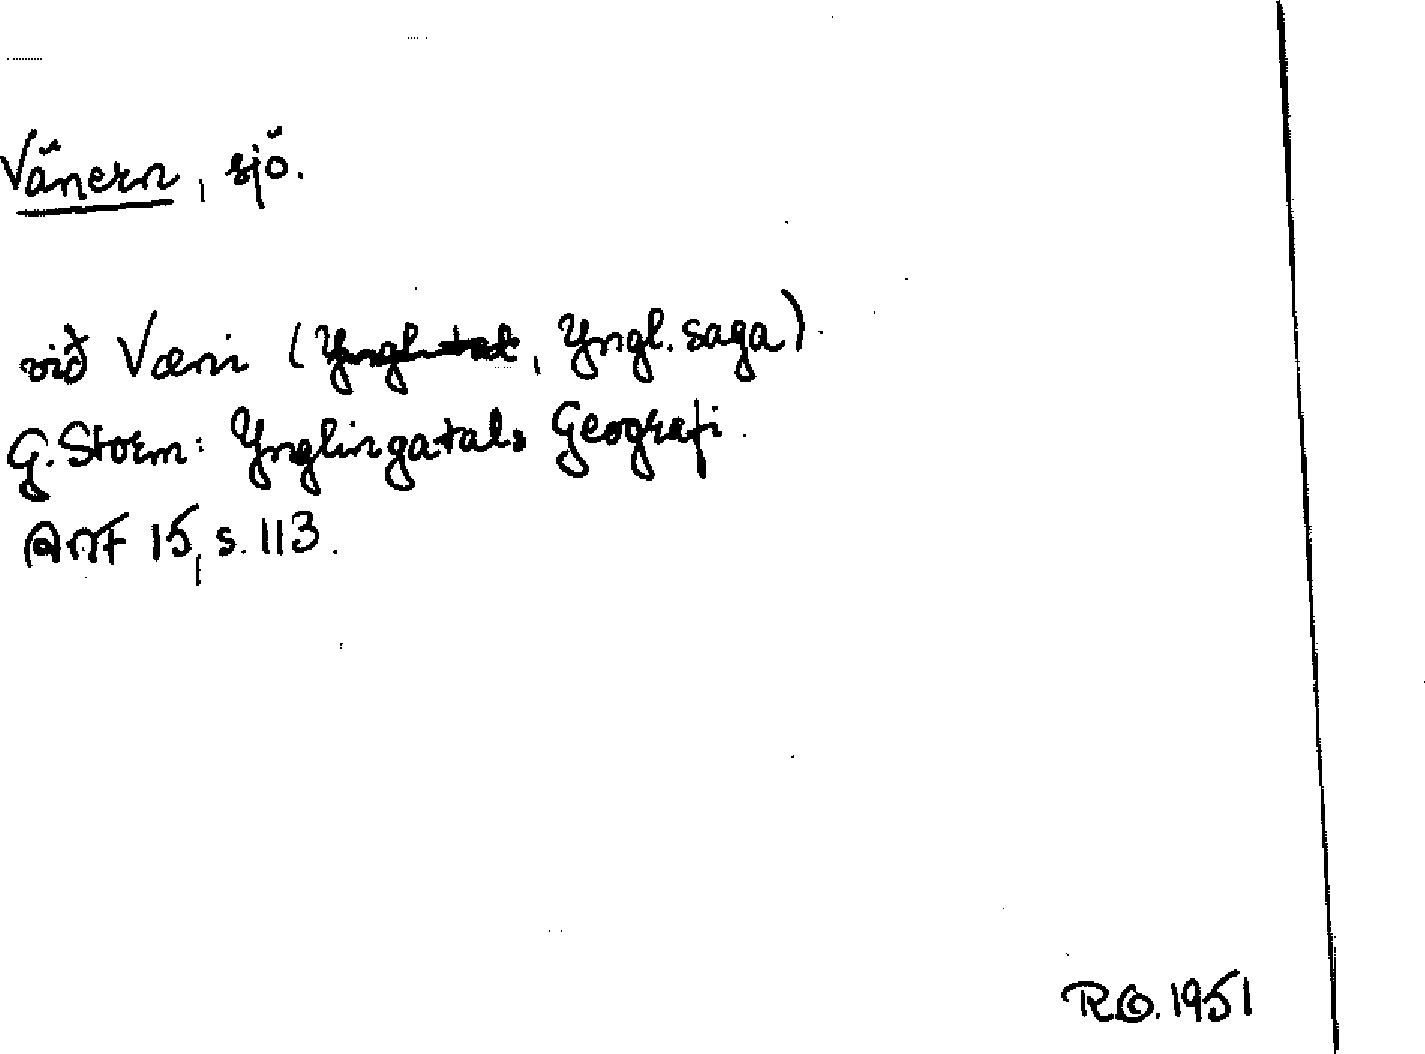 Vänern, sjö.
við Væni (Yngl. tal, Yngl. saga).
G. Storm: Ynglingatals Geografi.
ANF 15, s. 113.
R.O. 1951